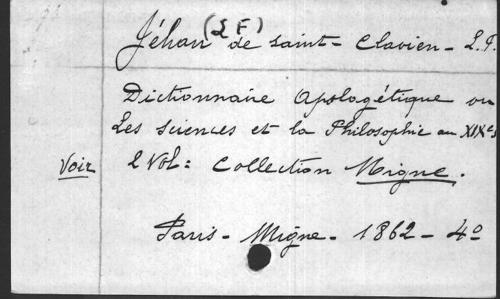 Jéhan (L F) de Saint-Clavien - L. F.
Dictionnaire Apologétique ou
Les Sciences et la Philosophie au XIXe s
Voir 2 Vol: Collection Migne.
Paris - Migne - 1862 - 4º